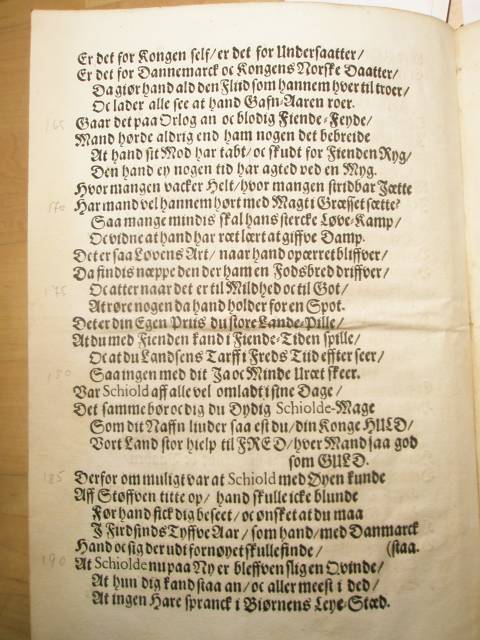 Er det for Kongen self/ er det for Undersaatter/
Er det for Dannemarck oc Kongens Norske Daatter/
Da giør hand ald den Fliid som hannem hver til troer/
Oc lader alle see at hand Gafn-Aaren roer.
165 Gaar det paa Orlog an oc blodig Fiende-Feyde/
Mand hørde aldrig end ham nogen det bebreide
At hand sit Mod har tabt/ oc skudt for Fienden Ryg/
Den hand ey nogen tid har agted ved en Myg.
Hvor mangen vacker Helt/ hvor mangen stridbar Jætte
170 Har mand vel hannem hørt med Magt i Græsset sætte?
Saa mange mindis skal hans stercke Løve-Kamp/
Oc vidne at hand har ræt lært at giffve Damp.
Det er saa Løvens Art/ naar hand opærret bliffver/
Da findis næppe den der ham en Fodsbred driffver/
175 Oc atter naar det er til Mildhed oc til Got/
At røre nogen da hand holder for en Spot.
Det er din Egen Priis du store Lande-Pille/
At du med Fienden kand i Fiende-Tiden spille/
Oc at du Landsens Tarff i Freds Tiid effter seer/
180 Saa ingen med dit Ja oc Minde Uræt skeer.
Var Schiold aff alle vel omladt i sine Dage/
Det samme bør oc dig du Dydig Schiolde-Mage
Som dit Naffn liuder saa est du/ din Konge HULD/
Vort Land stor hielp til FRED/ hver Mand saa god
som GULD.
185 Derfor om muligt var at Schiold med Øyen kunde
Aff Støffven titte op/ hand skulle icke blunde
Før hand fick dig beseet/ oc ønsket at du maa
I Firdsinds Tyffve Aar/ som hand/ med Danmarck
(staa.
Hand oc sig der udi fornøyet skulle finde/
190 At Schiolde nu paa Ny er bleffven slig en Qvinde/
At hun dig kand staa an/ oc aller meest i ded/
At ingen Hare spranck i Biørnens Leye-Stæd.